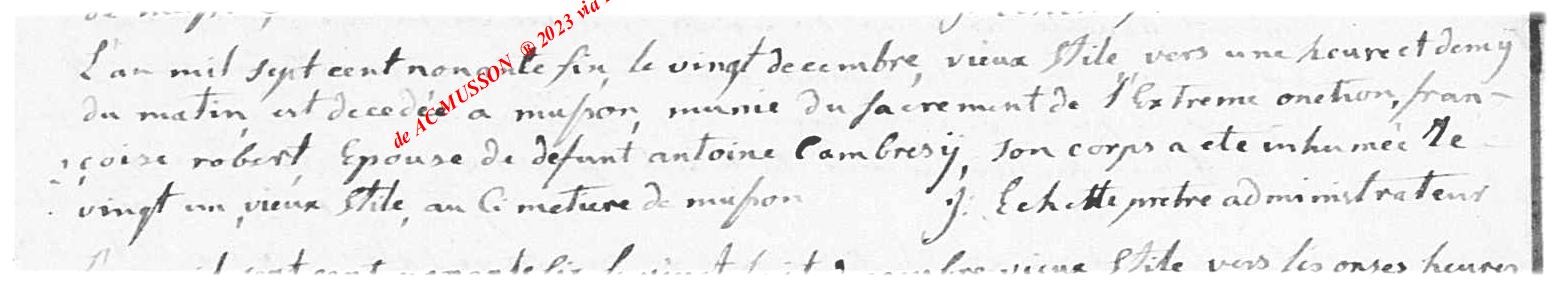 L'an mil sept cent nonante six, le vingt decembre, vieux Stile vers une heure et demÿ
du matin, est decedée a musson, munie du sacrement de l'Extreme onction, fran-
çoise robert, Epouse de defunt antoine Cambresÿ, son corps a ete inhumée le
vingt un, vieux Stile, au Cimetiere de musson J: Echette pretre administrateur
vieux Stile vers les onses heures
de ACMUSSON ® 2023 via